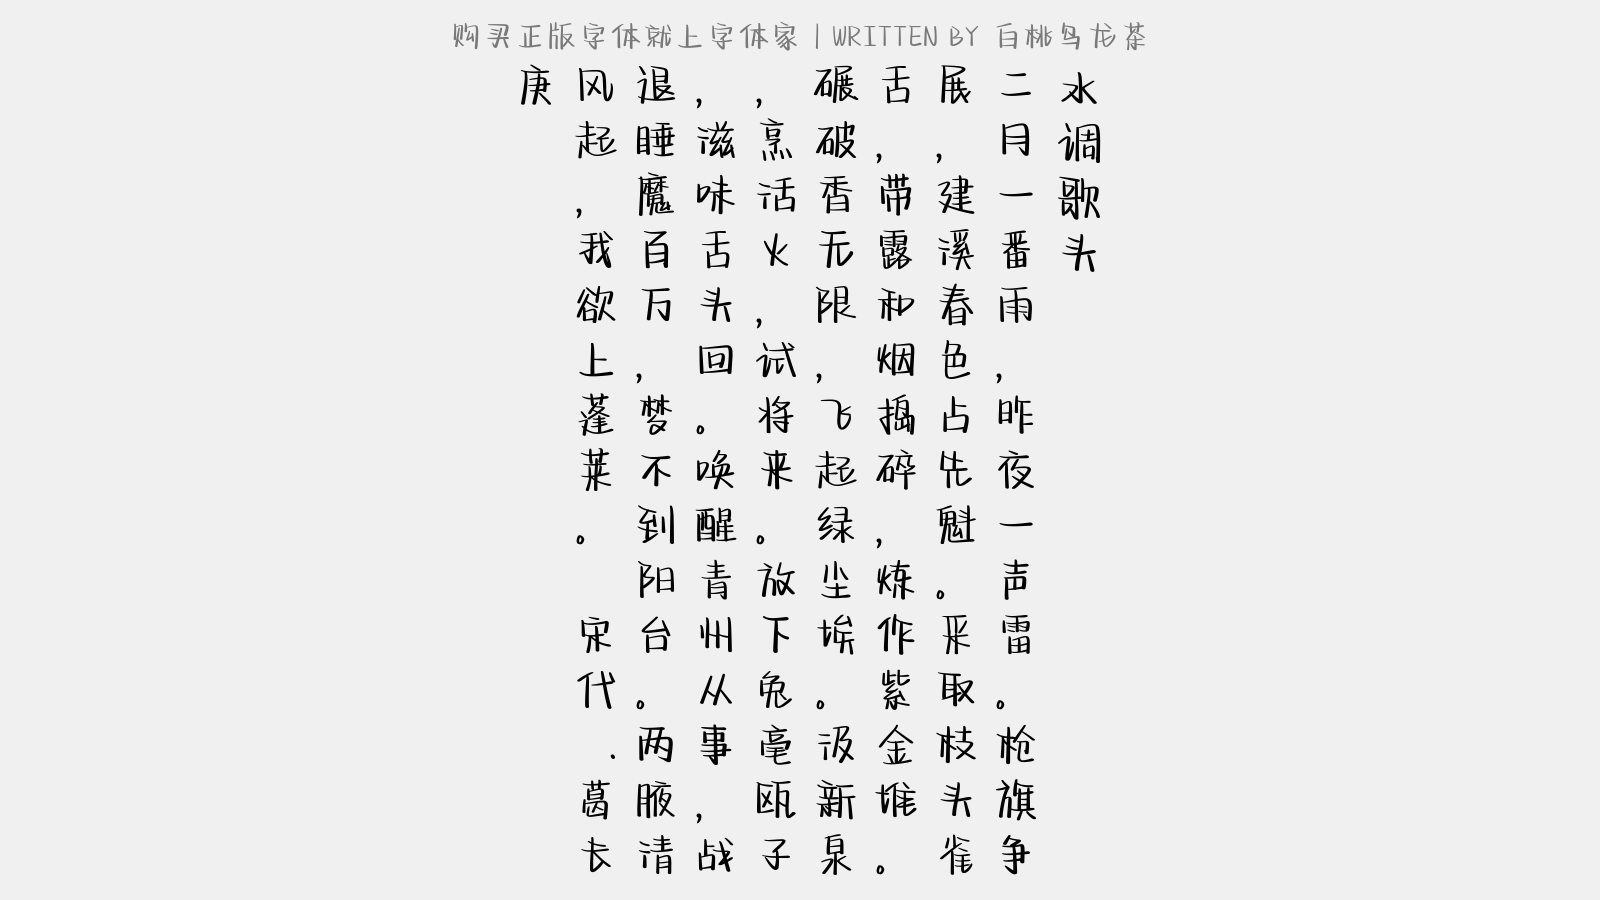 购买正版字体就上字体家 | WRITTEN BY 白桃乌龙茶
水调歌头
二月一番雨，昨夜一声雷。枪旗争
展，建溪春色占先魁。采取枝头雀
舌，带露和烟捣碎，炼作紫金堆。
碾破香无限，飞起绿尘埃。汲新泉
，烹活火，试将来。放下兔毫瓯子
，滋味舌头回。唤醒青州从事，战
退睡魔百万，梦不到阳台。两腋清
风起，我欲上蓬莱。 宋代 .葛长
庚